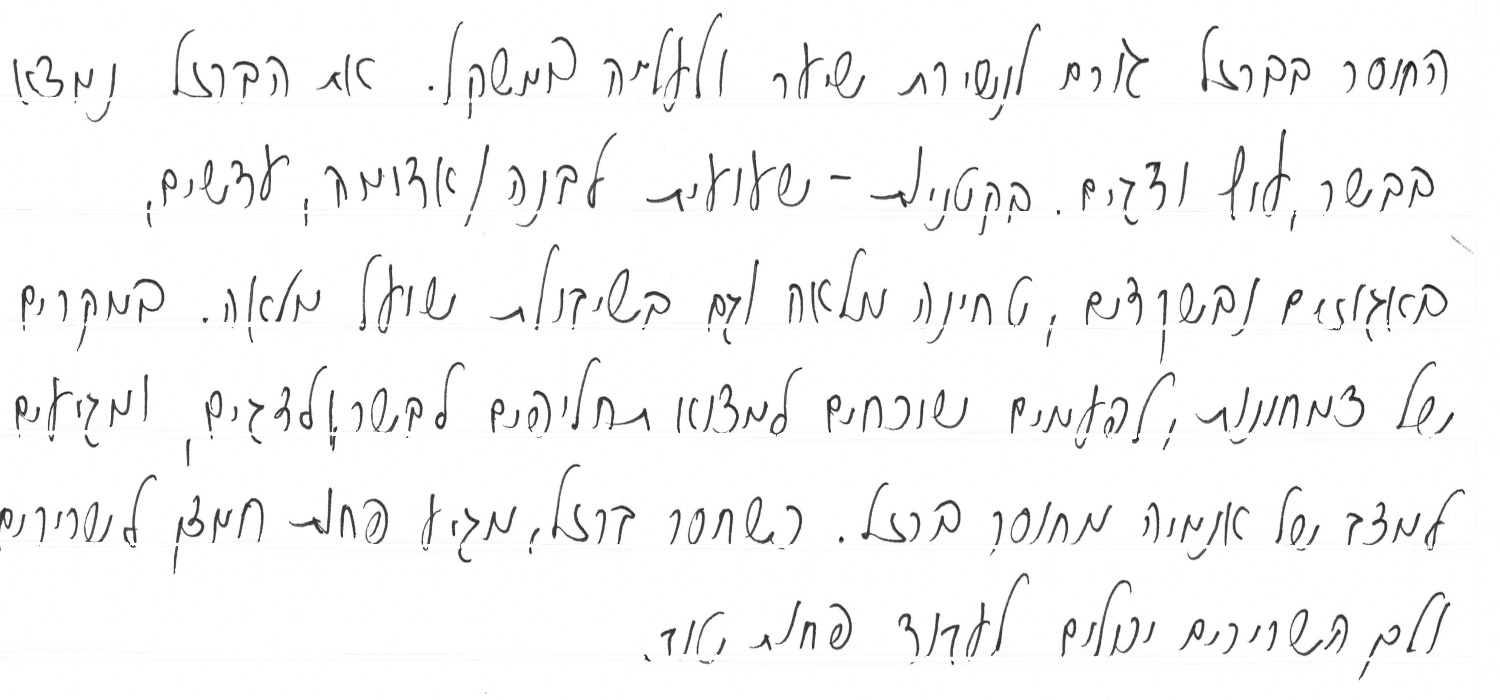 החוסר בברזל גורם לנשירת שיער ולעליה במשקל. את הברזל נמצא
בבשר, עוף ודגים. בקטניות - שעועית לבנה/אדומה, עדשים,
באגוזים ובשקדים, טחינה מלאה וגם בשיבולת שועל מלאה. במקרים
של צמחונות, לפעמים שוכחים למצוא תחליפים לבשר ולדגים, ומגיעים
למצב של אנמיה מחוסר ברזל. כשחסר ברזל, מגיע פחות חמצן לשרירים
ולכן השרירים יכולים לעבוד פחות טוב.